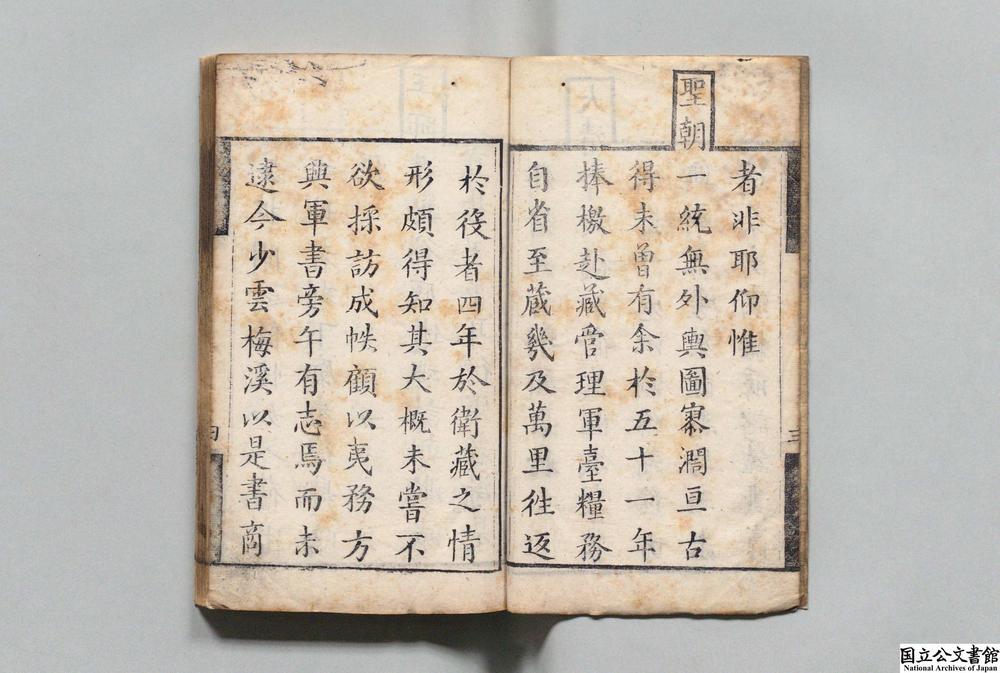 者非耶仰惟
聖朝
一統無外輿圖寥濶亘古
得未曾有余於五十一年
捧檄赴藏管理軍臺糧務
自省至蔵幾及萬里徃返
於役者四年於衛藏之情
形頗得知其大概未嘗不
欲採訪成帙顧以夷務方
興軍書旁午有志焉而未
逮今少雲梅溪以是書商
三
四
国立公文書館
National Archives of Japan